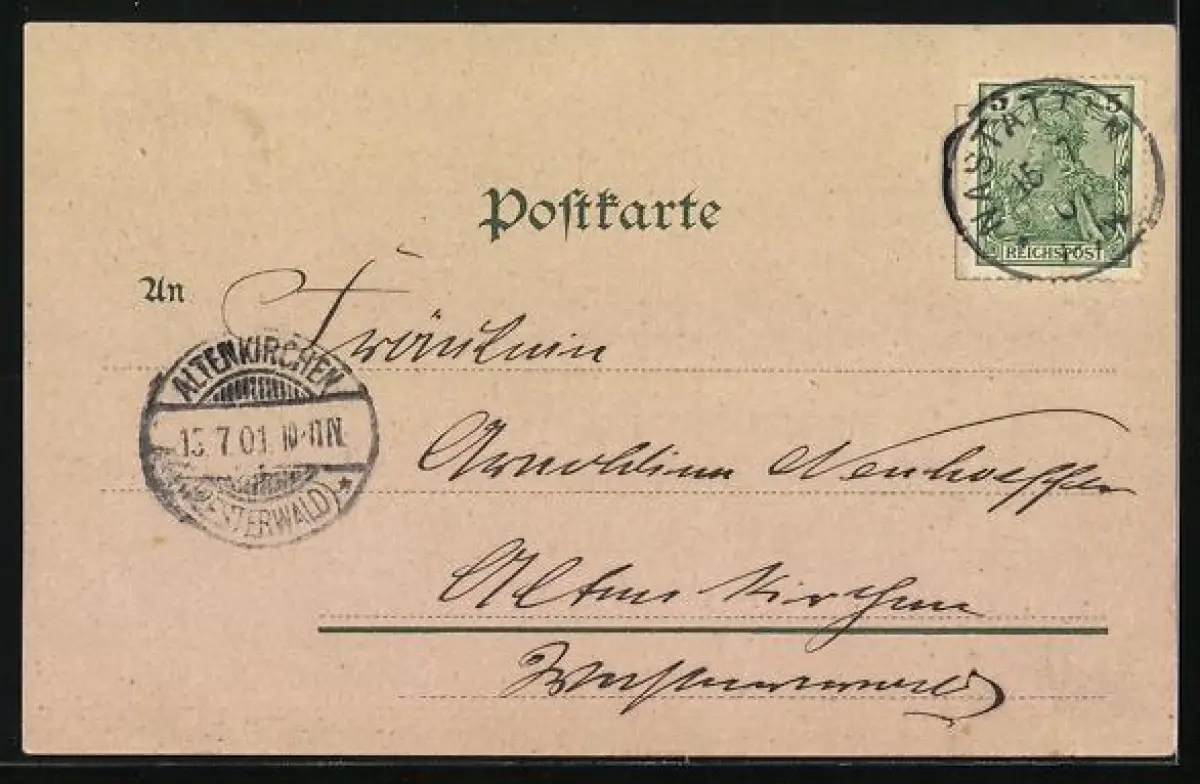 Postkarte
5 5
NASTÄTTEN
15 7
REICHSPOST
An
Fräulein
ALTENKIRCHEN
15.7.01. 10-11N.
(WESTERWALD)
Altenkirchen
Westerwald